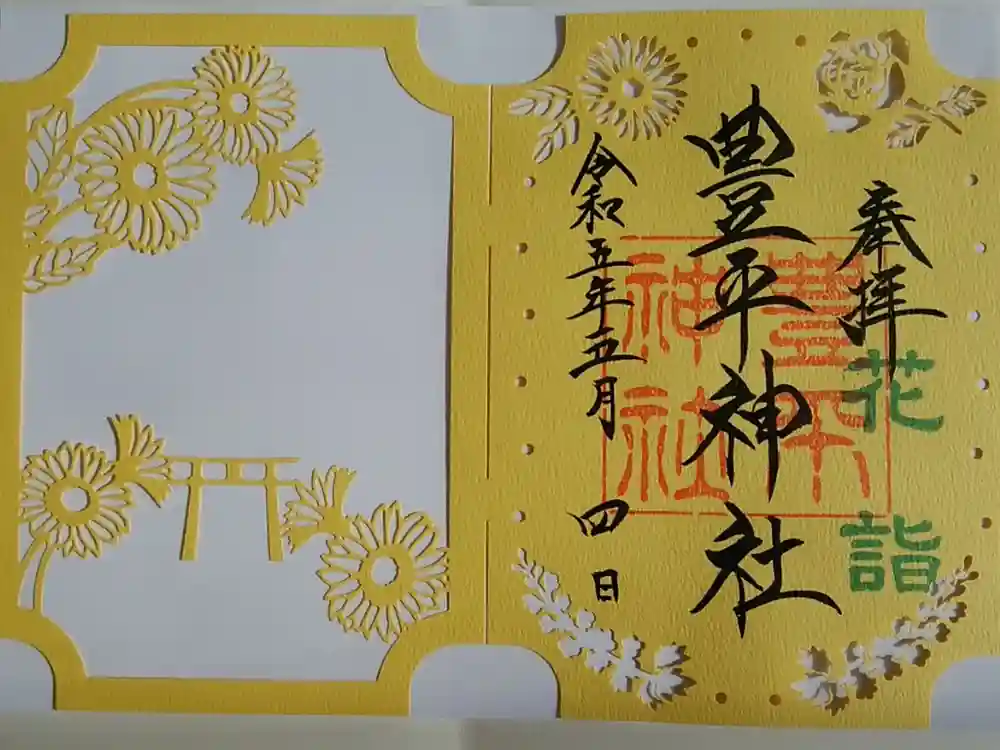 奉拝
花詣
豊平神社
豊平
神社
令和五年五月四日